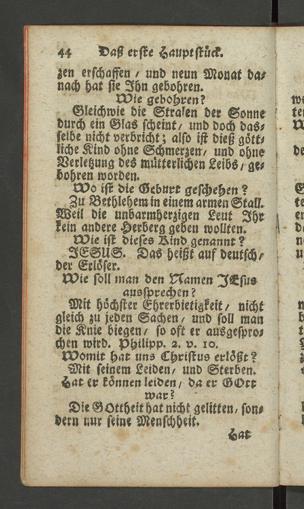 44 Daß erste Hauptstück.
zen erschaffen / und neun Monat da-
nach hat sie Ihn gebohren.
Wie gebohren?
Gleichwie die Stralen der Sonne
durch ein Glas scheint / und doch das-
selbe nicht verbricht; also ist dieß gött-
liche Kind ohne Schmerzen / und ohne
Verletzung des mütterlichen Leibs / ge-
bohren worden.
Wo ist die Geburt geschehen?
Zu Bethlehem in einem armen Stall.
Weil die unbarmherzigen Leut Ihr
kein andere Herberg geben wollten.
Wie ist dieses Kind genannt?
JESUS. Das heißt auf deutsch /
der Erlöser.
Wie soll man den Namen JEsus
aussprechen?
Mit höchster Ehrerbietigkeit / nicht
gleich zu jeden Sachen / und soll man
die Knie biegen / so oft er ausgespro-
chen wird. Philipp. 2. v. 10.
Womit hat uns Christus erlößt?
Mit seinem Leiden / und Sterben.
Hat er können leiden / da er GOtt
war?
Die GOttheit hat nicht gelitten / son-
dern nur seine Menschheit.
Hat